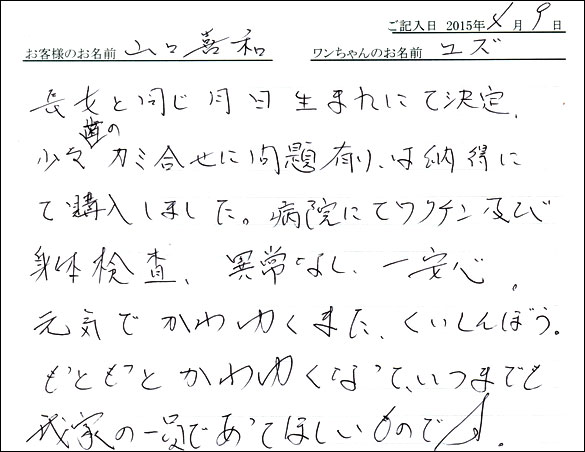 ご記入日 2015年4月9日
お客様のお名前 山口喜和 ワンちゃんのお名前 ユズ
長女と同じ月日生まれにて決定、
少々歯のカミ合せに問題有り、は納得に
て購入しました。病院にてワクチン及び
身体検査、異常なし、一安心。
元気でかわゆくまた、くいしんぼう。
もともとかわゆくなって、いつまでも
我家の一員であってほしいものです。